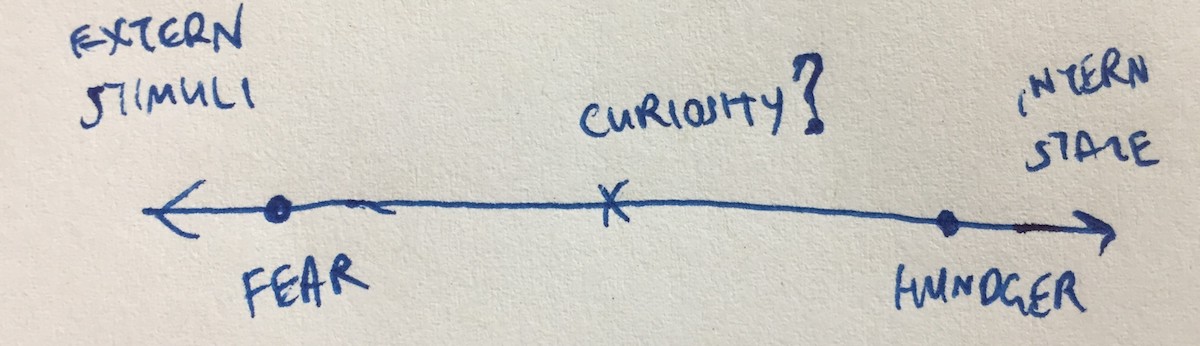 EXTERN
STIMULI
CURIOSITY?
INTERN
STATE
FEAR
HUNDGER